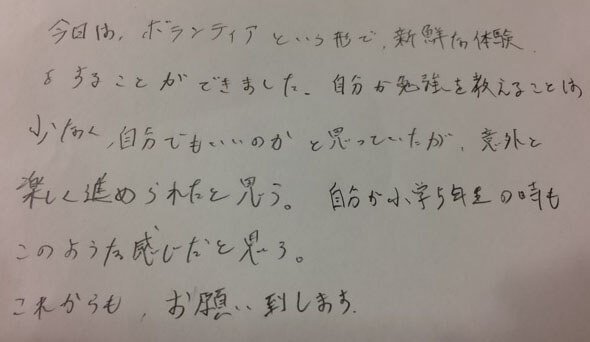 今日は、ボランティアという形で、新鮮な体験
をすることができました。自分が勉強を教えることは
少なく、自分でもいいのかと思っていたが、意外と
楽しく進められたと思う。自分が小学5年生の時も
このような感じだと思う。
これからも、お願い到します。